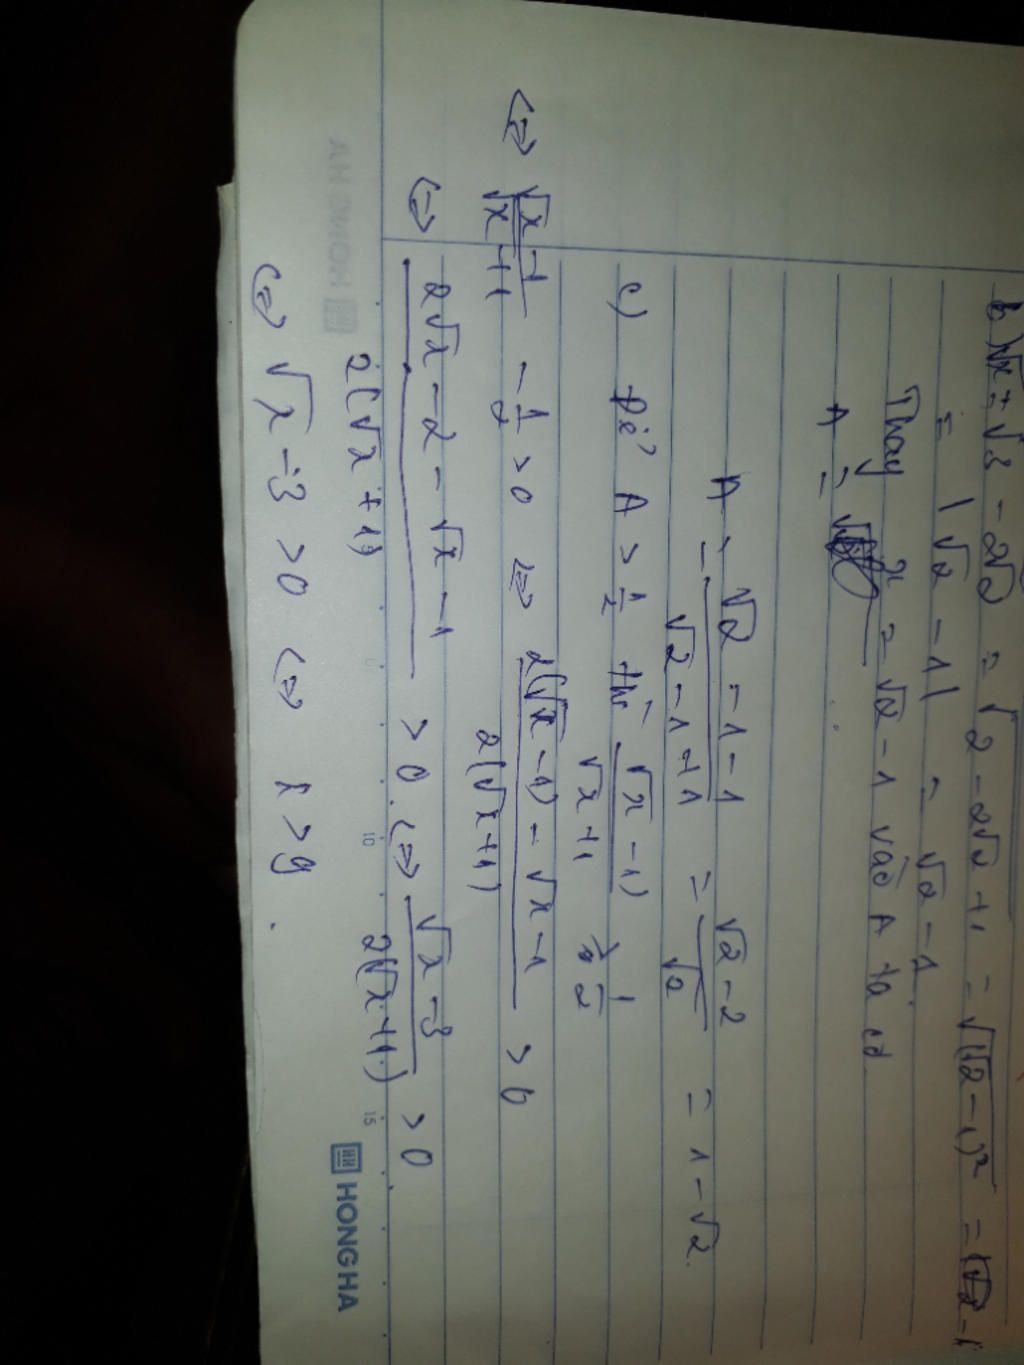 b) √x = √3 - 2√2 = √2 - 2√2 + 1 = √(√2 - 1)² = |√2 - 1
= |√2 - 1| = √2 - 1.
Thay x = √2 - 1 vào A ta có
A =
A = (√2 - 1 - 1)/(√2 - 1 + 1) = (√2 - 2)/√2 = 1 - √2.
c) Để A > 1/2 thì (√x - 1)/(√x + 1) > 1/2
<=> (√x - 1)/(√x + 1) - 1/2 > 0 <=> (2(√x - 1) - √x - 1)/(2(√x + 1)) > 0
<=> (2√x - 2 - √x - 1)/(2(√x + 1)) > 0. <=> (√x - 3)/(2(√x + 1)) > 0
<=> √x - 3 > 0 <=> x > 9.
HONG HA
HONG HA